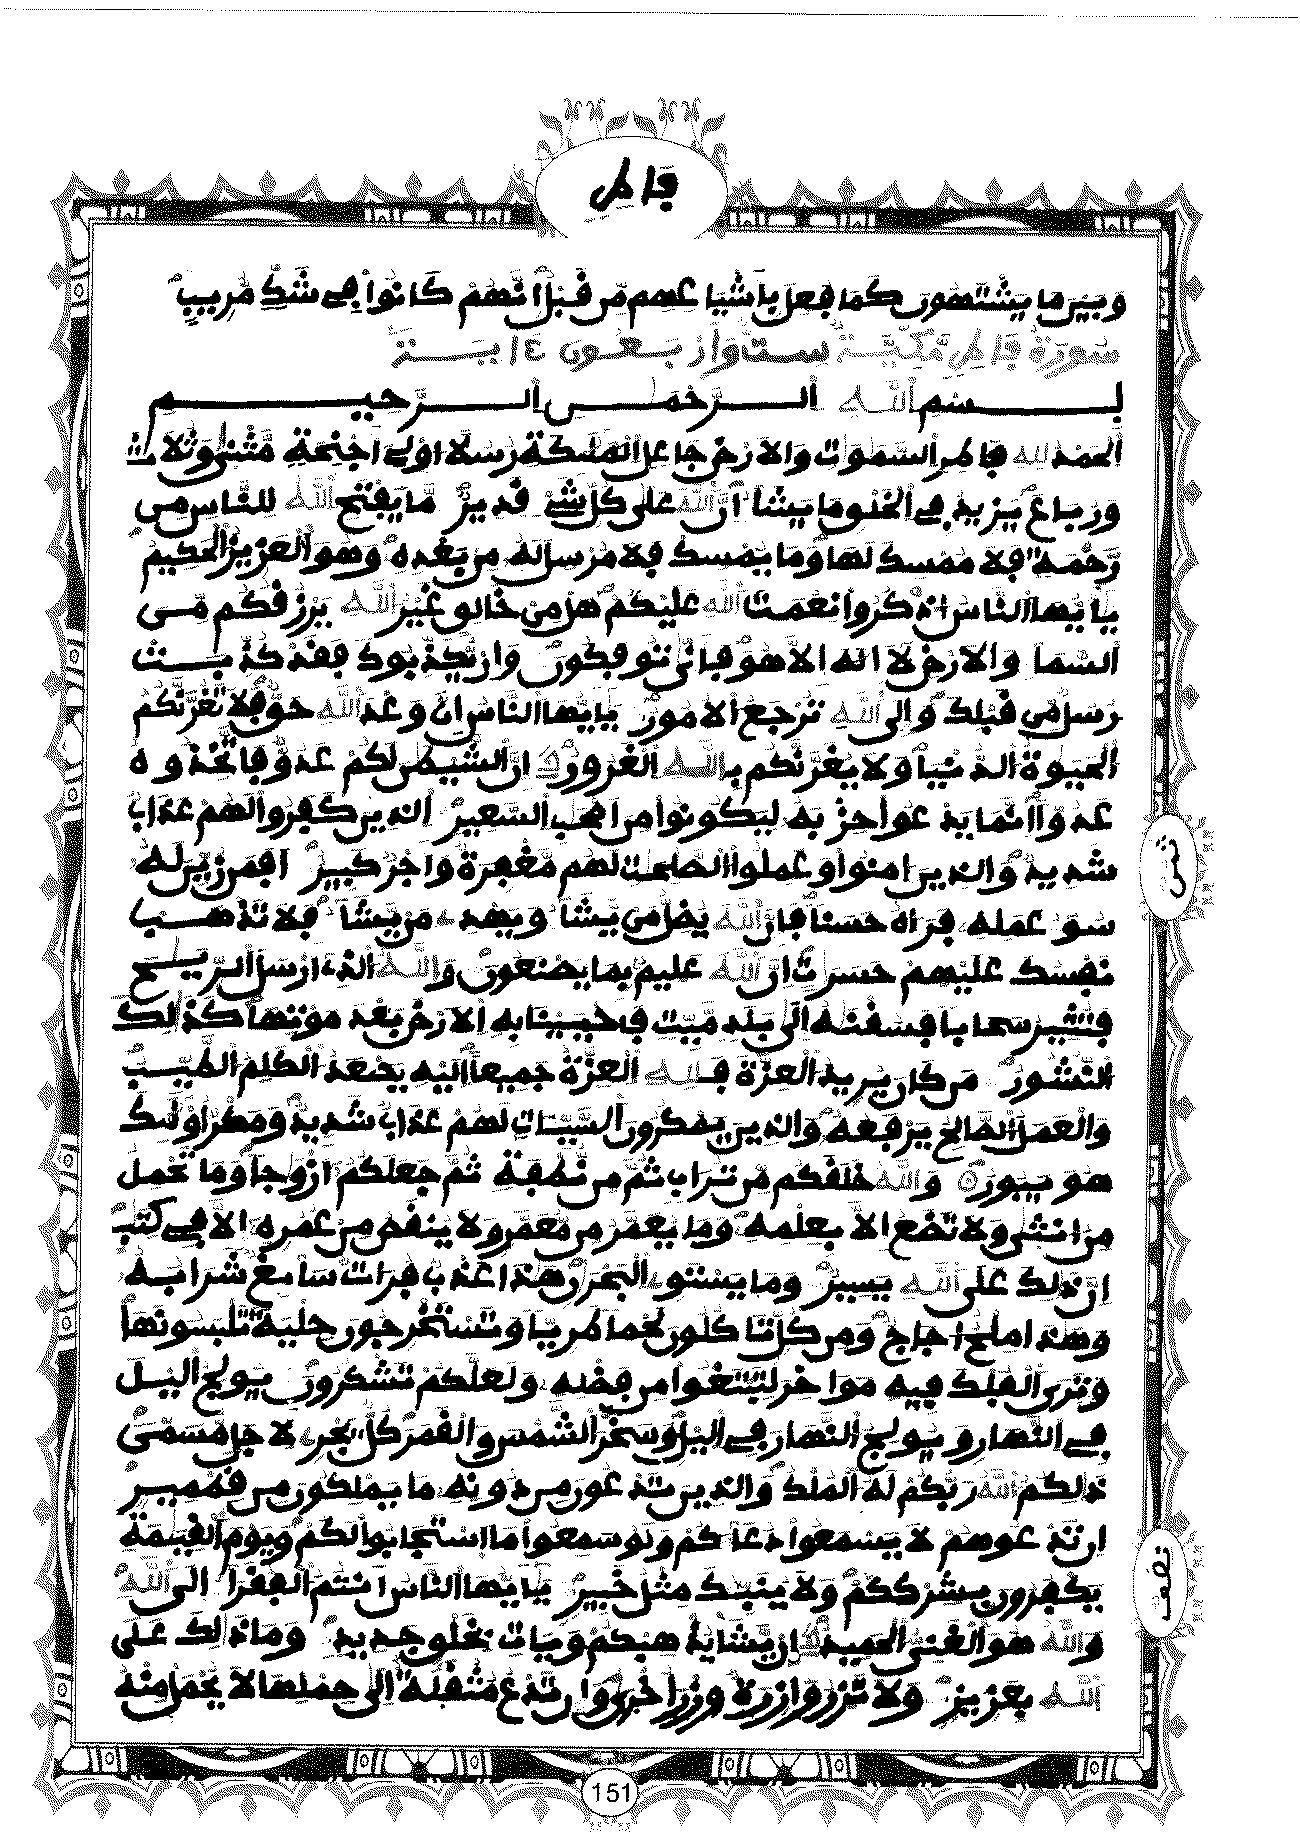 فاطر
وبين ما يشتهون كما فعل بأشياعهم من قبل إنهم كانوا في شك مريب
سورة فاطر مكية ست وأربعون ءاية
بسم الله الرحمن الرحيم
الحمد لله فاطر السموت والارض جاعل الملئكة رسلا اولي اجنحة مثنى وثلاث
ورباع يزيد في الخلق ما يشاء ان الله على كل شيء قدير ما يفتح الله للناس من
رحمة فلا ممسك لها وما يمسك فلا مرسل له من بعده وهو العزيز الحكيم
يا يها الناس اذكروا نعمت الله عليكم هل من خالق غير الله يرزقكم من
السماء والارض لا اله الا هو فانى توفكون وان يكذبوك فقد كذبت
رسل من قبلك والى الله ترجع الامور يا يها الناس ان وعد الله حق فلا تغرنكم
الحيوة الدنيا ولا يغرنكم بالله الغرور ان الشيطن لكم عدو فاتخذوه
عدوا انما يدعوا حزبه ليكونوا من اصحب السعير الذين كفروا لهم عذاب
شديد والذين امنوا وعملوا الصلحت لهم مغفرة واجر كبير افمن زين له
سوء عمله فراه حسنا فان الله يضل من يشاء ويهدي من يشاء فلا تذهب
نفسك عليهم حسرت ان الله عليم بما يصنعون والله الذي ارسل الريح
فتثير سحابا فسقنه الى بلد ميت فاحيينا به الارض بعد موتها كذلك
النشور من كان يريد العزة فلله العزة جميعا اليه يصعد الكلم الطيب
والعمل الصالح يرفعه والذين يمكرون السيات لهم عذاب شديد ومكر اولئك
هو يبور والله خلقكم من تراب ثم من نطفة ثم جعلكم ازوجا وما تحمل
من انثى ولا تضع الا بعلمه وما يعمر من معمر ولا ينقص من عمره الا في كتب
ان ذلك على الله يسير وما يستوي البحرن هذا عذب فرات سائغ شرابه
وهذا ملح اجاج ومن كل تاكلون لحما طريا وتستخرجون حلية تلبسونها
وترى الفلك فيه مواخر لتبتغوا من فضله ولعلكم تشكرون يولج اليل
في النهار ويولج النهار في اليل وسخر الشمس والقمر كل يجري لاجل مسمى
ذلكم الله ربكم له الملك والذين تدعون من دونه ما يملكون من قطمير
ان تدعوهم لا يسمعوا دعاءكم ولو سمعوا ما استجابوا لكم ويوم القيمة
يكفرون بشرككم ولا ينبئك مثل خبير يا يها الناس انتم الفقراء الى الله
والله هو الغني الحميد ان يشا يذهبكم ويات بخلق جديد وما ذلك على
الله بعزيز ولا تزر وازرة وزر اخرى وان تدع مثقلة الى حملها لا يحمل منه
ثمن
نصف
151